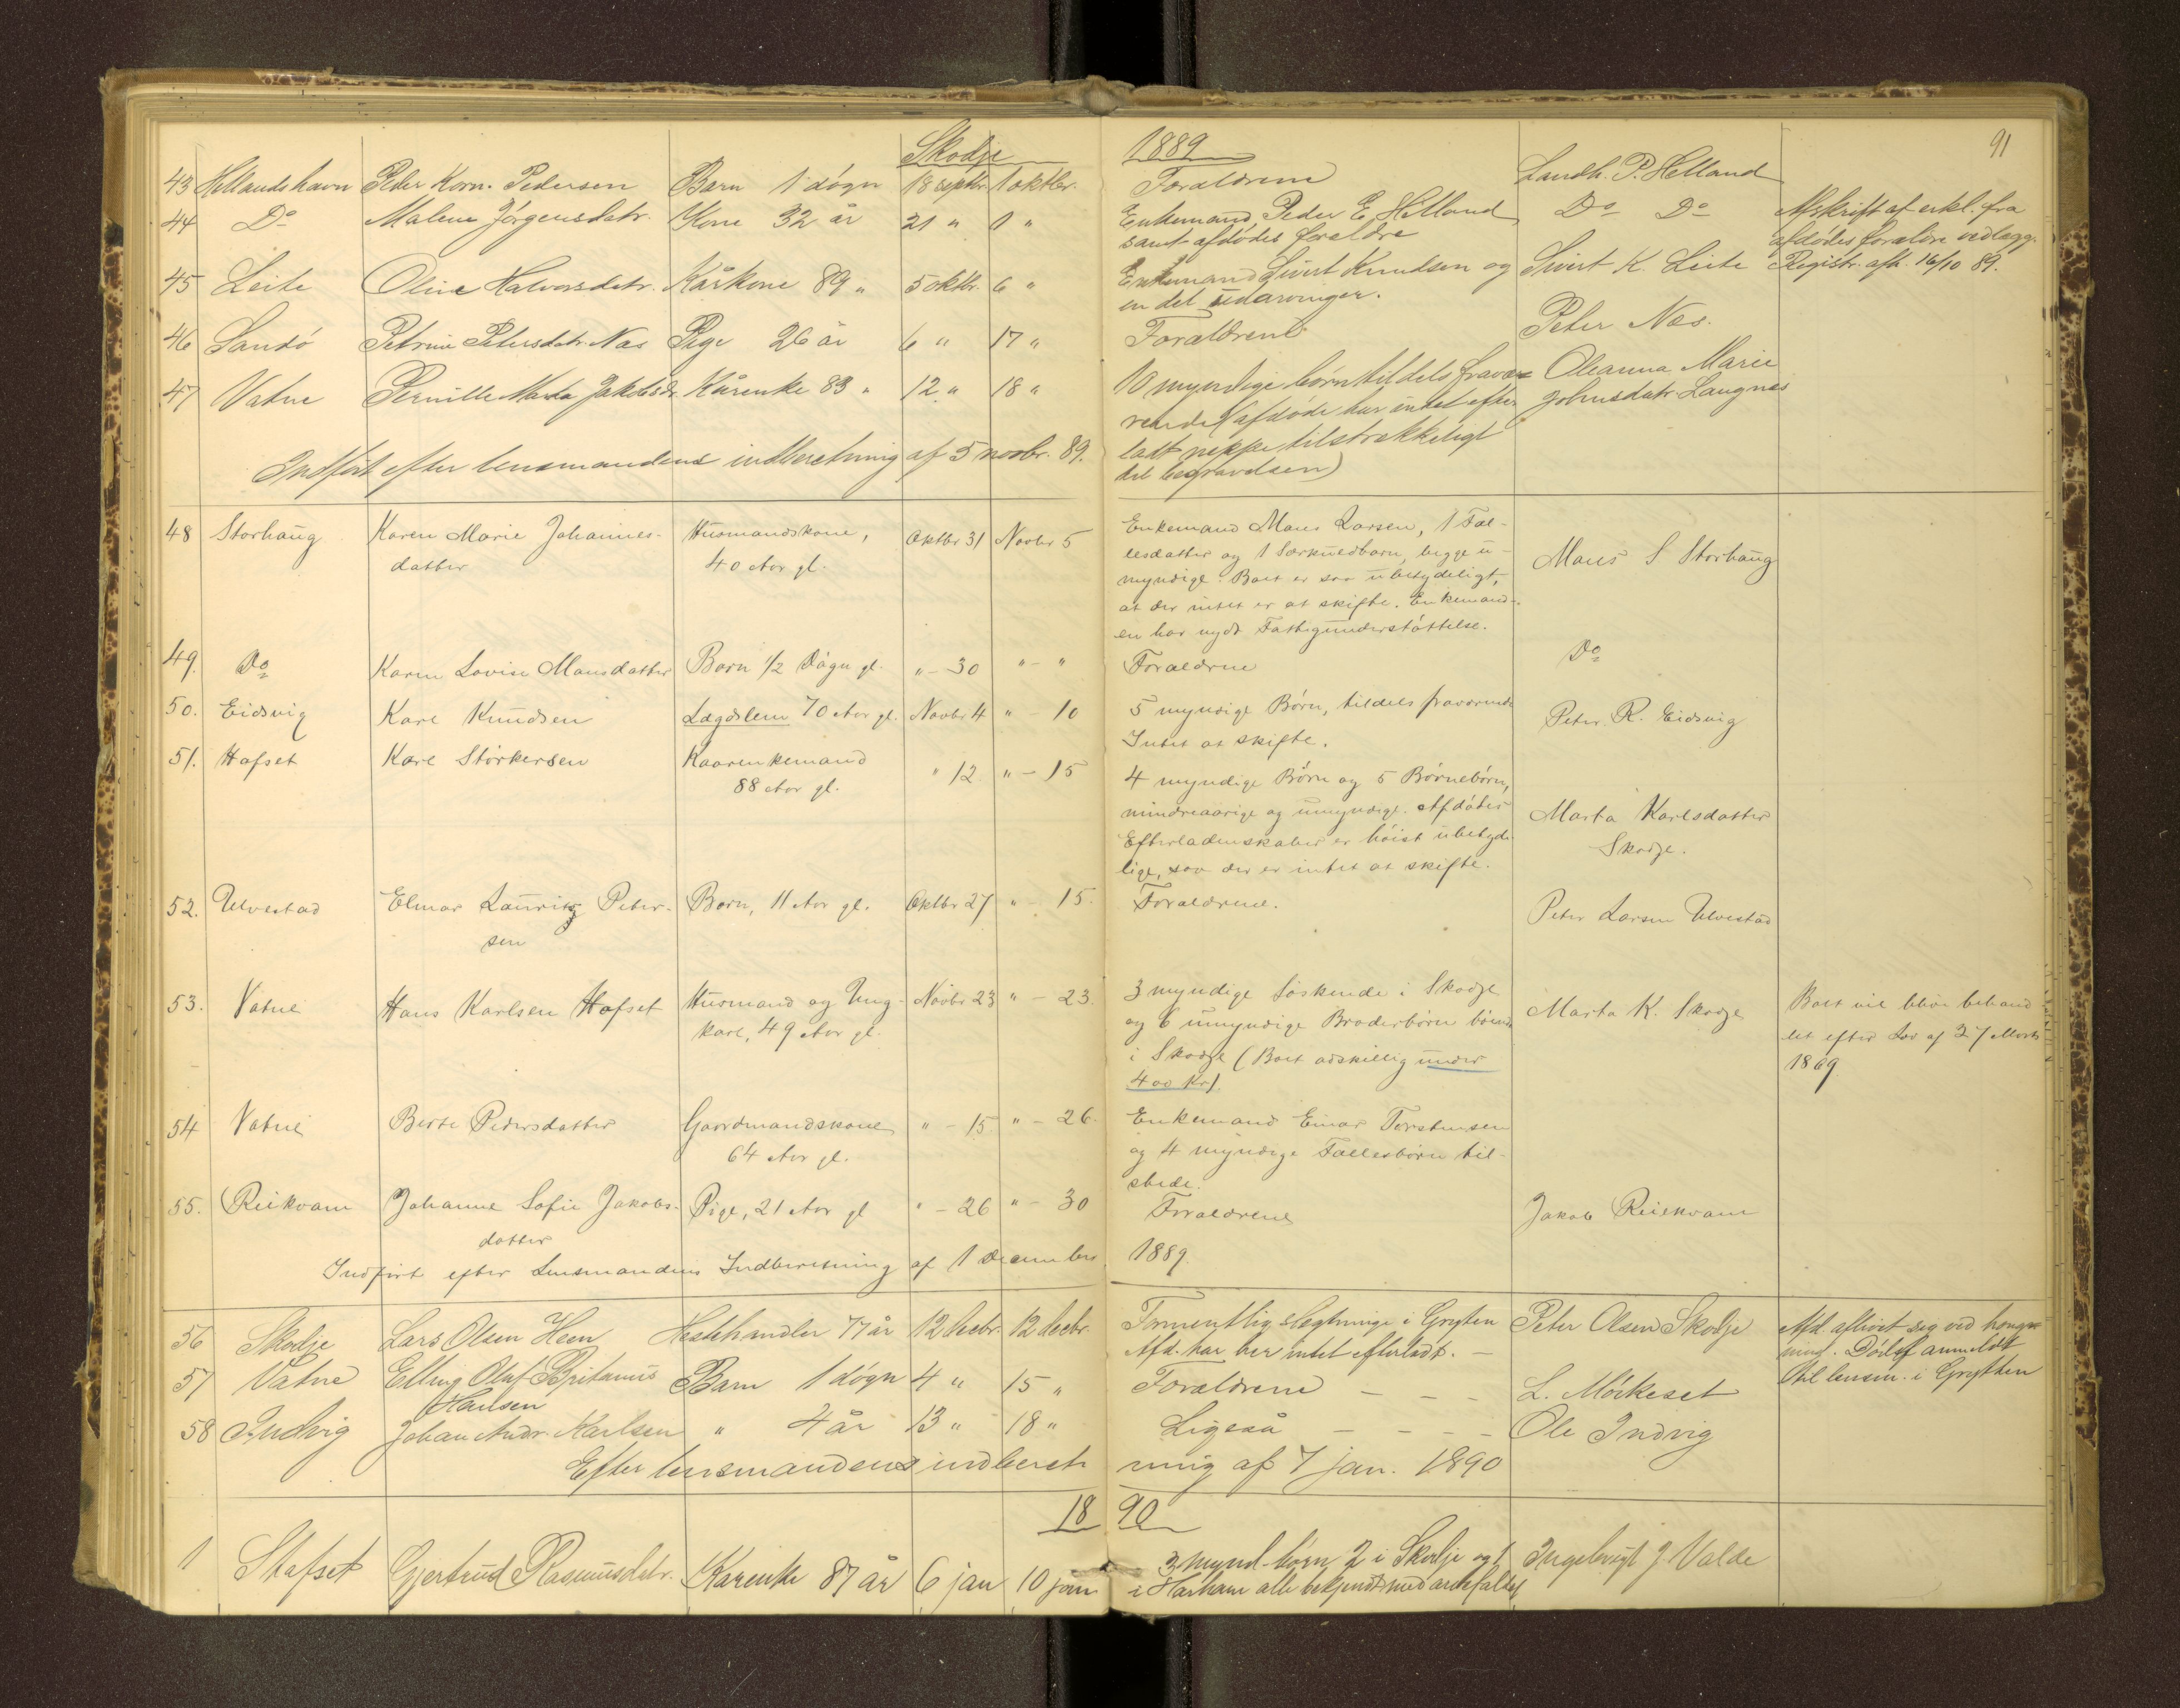 Skodje 1889 91
43 Hellandshavn Peder Korn. Pedersen Barn 1 døgn 18 septbr. 1 oktbr. Forældrene Landh. P. Helland
44 Do Malene Jørgensdatr. Kone 32 år 21 " 1 " Enkemand Peder E. Helland Do Do Afskrift af erkl. fra
samt afdødes forældre afdødes forældre vedlægg.
45 Leite Oline Halvorsdatr. Kårkone 89 " 5 oktbr. 6 " Enkemand Sivert Knudsen og Sivert K. Leite Registr. afh. 16/10 89.
en del udarvinger.
46 Sandø Petrine Petersdatr. Næs Pige 26 år 6 " 17 " Forældrene Peter Næs.
47 Vatne Pernille Marta Jakobsdr. Kårenke 83 " 12 " 18 " 10 myndige børn tildels fravæ- Oleanna Marie
rende (afdøde har intet efter- Johnsdatr. Langnes
ladt neppe tilstrækkeligt
Indført efter lensmandens indberetning af 5 novbr. 89. til begravelsen)
48 Storhaug Karen Marie Johannes- Husmandskone, Oktbr 31 Novbr 5 Enkemand Mons Larsen, 1 Fæl-
datter 40 Aar gl. lesdatter og 1 Særkuldbarn, begge u- Mons S Storhaug
myndige. Boet er saa ubetydeligt,
at der intet er at skifte. Enkemand-
en har nydt Fattigunderstøttelse.
49. Do Karen Lovise Monsdatter Barn 1/2 Døgn gl. " - 30 " - " Forældrene Do
50. Eidsvig Karl Knudsen Lægdslem 70 Aar gl. Novbr 4 " - 10 5 myndige Børn, tildels fraværende Peter R. Eidsvig
Intet at skifte.
51. Hafset Karl Størkersen Kaarenkemand " 12. " - 15 4 myndige Børn og 5 Børnebørn,
88 Aar gl. mindreaarige og umyndige. Afdødes Marta Karlsdatter
Efterladenskaber er høist ubetyde- Skodje.
lige, saa der er intet at skifte.
52. Ulvestad Elmar Lauritz Peter- Barn, 11 Aar gl. Oktbr 27 " - 15. Forældrene. Peter Larsen Ulvestad
sen
53. Vatne Hans Karlsen Hafset Husmand og Ung- Novbr 23 " - 23. 3 myndige Søskende i Skodje Marta K. Skodje Boet vil blive behand-
karl, 49 Aar gl. og 6 umyndige Broderbørn boende let efter Lov af 27 Marts
i Skodje (Boet adskillig under 1869
400 Kr).
54 Vatne Berte Pedersdatter Gaardmandskone " - 15. " - 26. Enkemand Einar Torstensen
64 Aar gl. og 4 myndige Fællesbørn til-
stede.
55. Reikvam Johanne Sofie Jakobs- Pige, 21 Aar gl " - 26 " - 30 Forældrene Jakob Reiekvam
datter
Indført efter Lensmandens Indberetning af 1 December 1889.
56 Skodje Lars Olsen Heen Hestehandler 77 år 12 decbr. 12 decbr. Formentlig slegtninge i Grytten Peter Olsen Skodje Afd. aflivet seg ved hæng-
Afd. har her intet efterladt. - ning. Dødsf. anmeldt
57 Vatne Elling Oluf Britanus Barn 1 døgn 4 " 15 " Forældrene - - - L. Mørkeset til lensm. i Grytten
Karlsen
58 Indvig Johan Andr. Karlsen " 4 år 13 " 18 " Ligeså - - - - Ole Indvig
Efter lensmandens indberet- ning af 7 jan. 1890
1890
1 Stafset Gjertrud Rasmusdatr. Kårenke 87 år 6 jan 10 jan 3 mynd. børn 2 i Skodje og 1 Ingebrigt J. Valde
i Harham alle bekjendt med arvefaldet